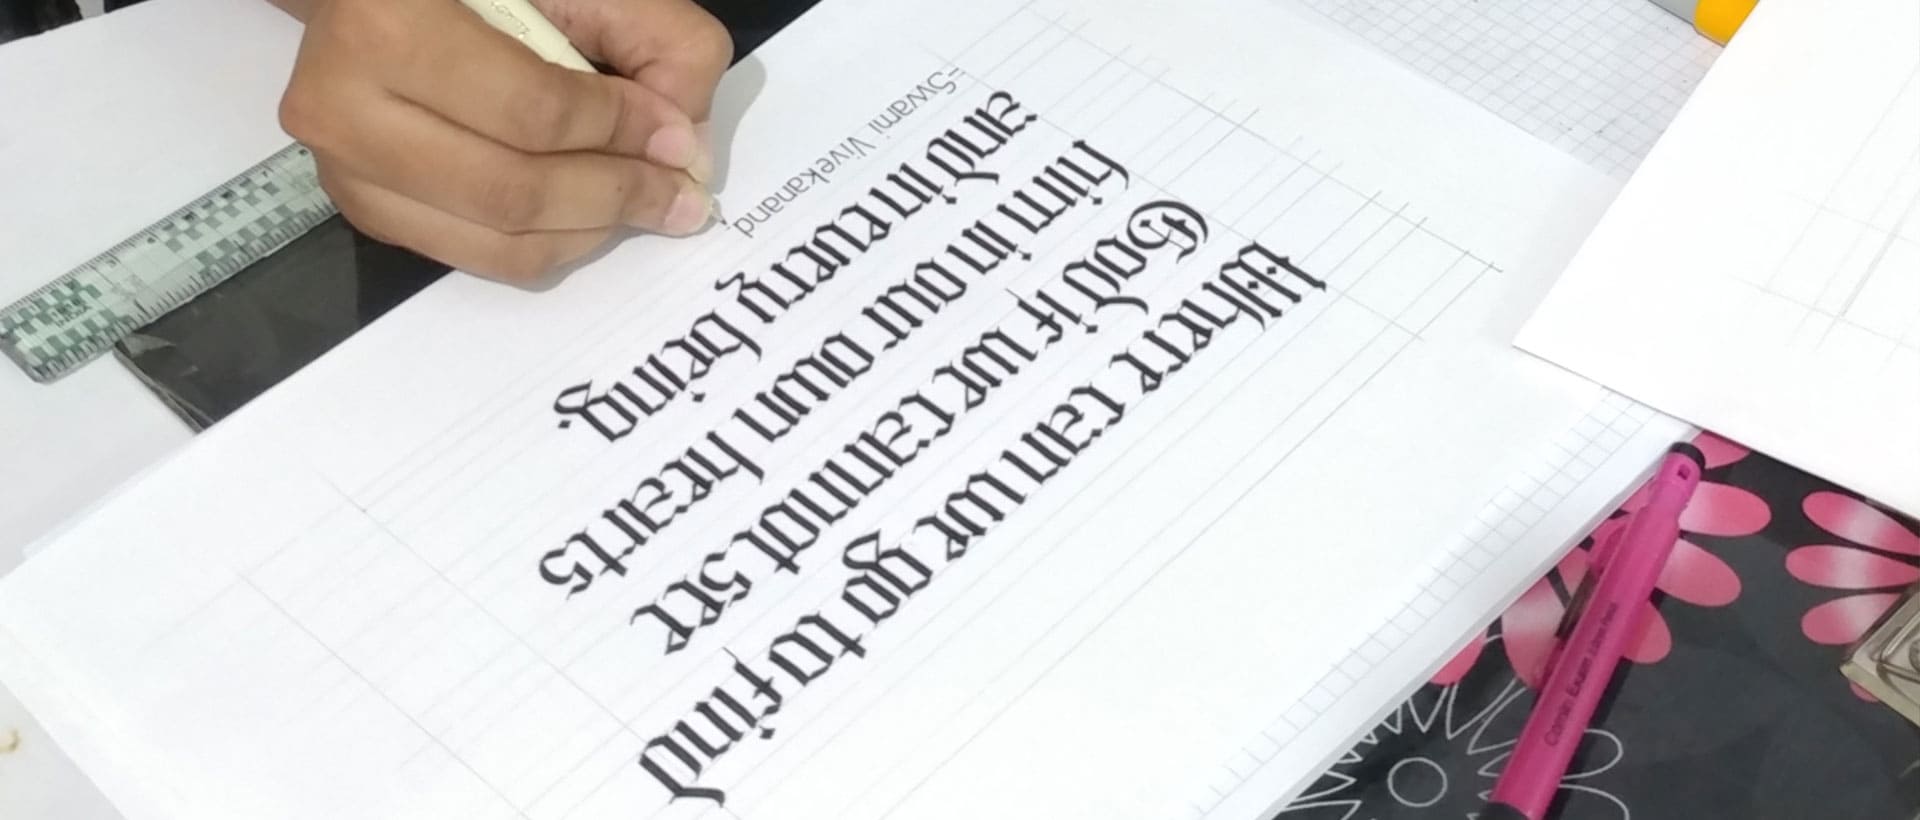 Where can we go to find
God if we cannot see
him in our own hearts
and in every being.
=Swami Vivekanand
Camlin Exam Pen
INDIA